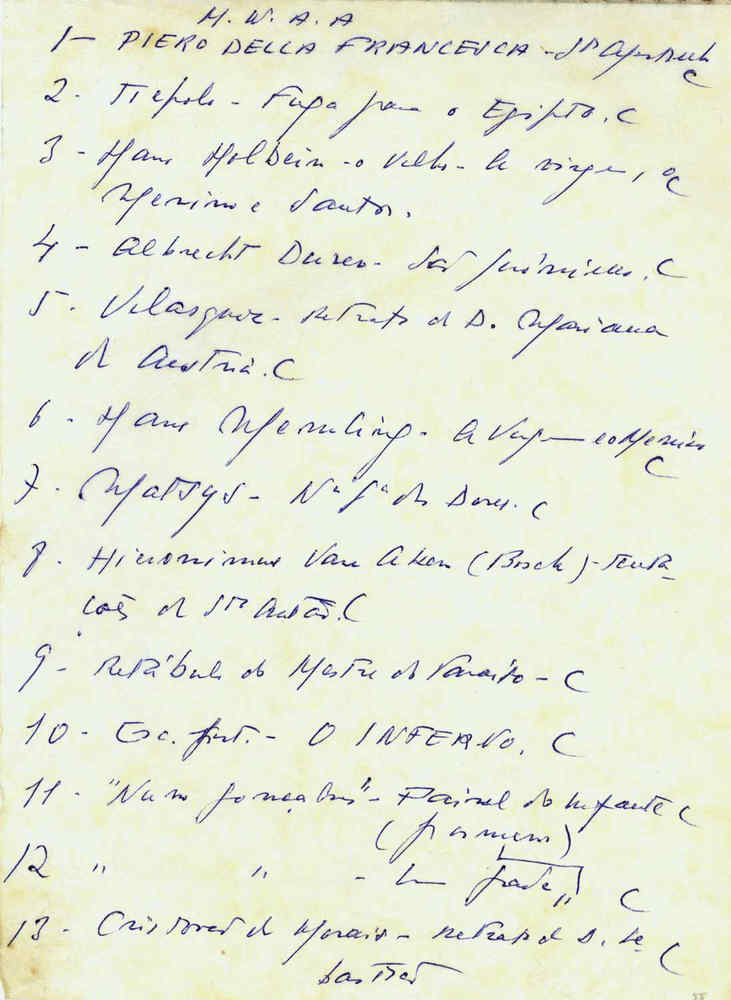 M. N. A. A
1 - PIERO DELLA FRANCESCA - Stº Agostinho
C
2 - Tiepolo - Fuga para o Egipto. C
3 - Hans Holbein - o Velho - A virgem, o C
Menino e Santos.
4 - Albrecht Durer - São Jerónimo. C
5 - Velasquez - Retrato de D. Mariana
de Austria. C
6 - Hans Memling - A Virgem e o Menino
C
7 - Matsys - Nª Sª das Dores. C
8 - Hieronimus Van Aken (Bosch) - Tenta_
ções de Stº Antão. C
9 - Retábulo do Mestre do Paraíso - C
10 - Esc. port. - O INFERNO. C
11 - "Nuno Gonçalves" - Painel do Infante C
(pormenor)
12 " " - Um frade " C
13 - Cristovão de Morais - Retrato de D. Se_ C
bastião